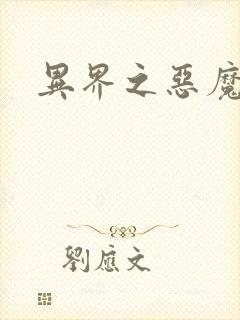 異界之惡魔
劉應文